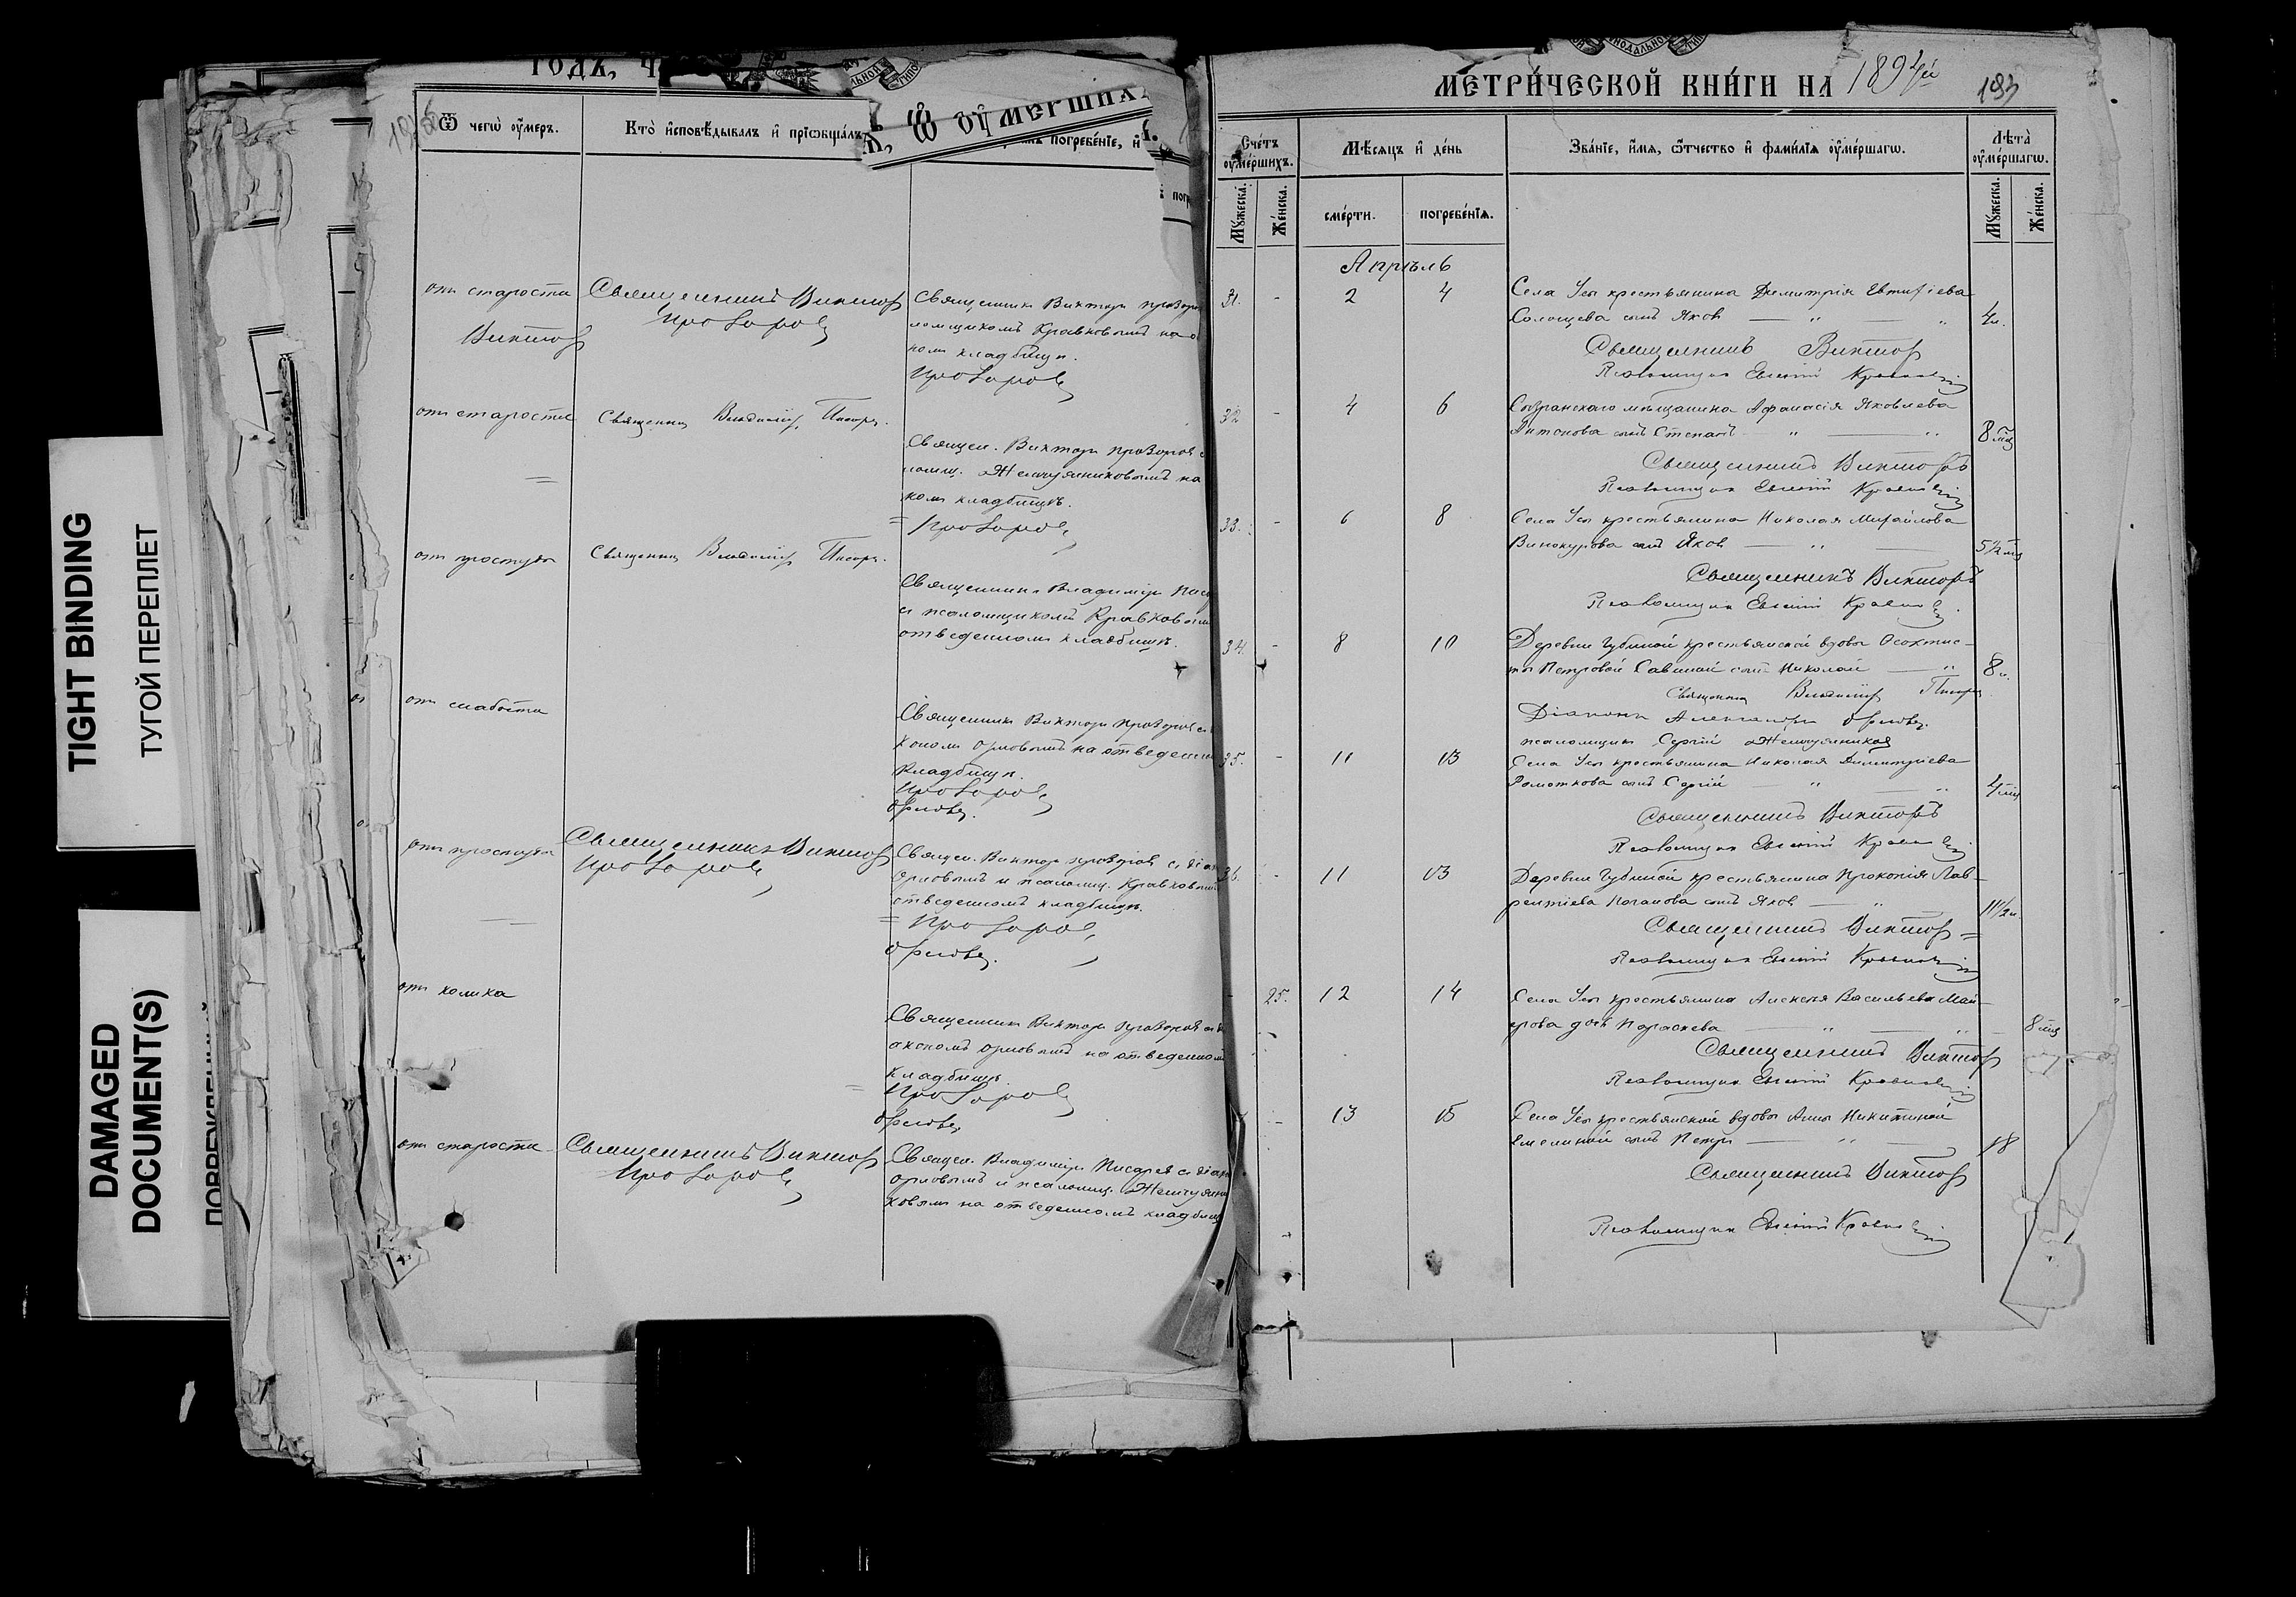 TIGHT BINDING
ТУГОЙ ПЕРЕПЛЕТ
DAMAGED
DOCUMENT(S)
ГОДЪ,
Ѿ оумершихъ
Ѿ чегѡ оумеръ.
Кто исповѣдывалъ и прїѡбщалъ
погребенїе, и
отъ старости
Священникъ Викторъ
Прозоровъ
Викторъ
Священникъ Викторъ Прозоро
ломщикомъ Кравковымъ на о
номъ кладбищѣ.
Прозоровъ
отъ старости
Священникъ Владиміръ Писаревъ.
Священ. Викторъ Прозоровъ с
ломщ. Жемчужниковымъ на
номъ кладбищѣ.
Прозоровъ
отъ простуды
Священникъ Владиміръ Писаревъ.
Священникъ Владиміръ Писа
съ псаломщикомъ Кравковым
отведенномъ кладбищѣ.
отъ слабости
Священникъ Викторъ Прозоровъ съ
кономъ Орловымъ на отведенно
кладбищѣ.
Прозоровъ
Орловъ.
отъ простуды
Священникъ Викторъ
Прозоровъ
Священ. Викторъ Прозоровъ съ діак
Орловымъ и псаломщ. Кравковым
отведенномъ кладбищѣ.
Прозоровъ
Орловъ.
отъ колика
Священникъ Викторъ Прозоровъ съ ді
акономъ Орловымъ на отведенном
кладбищѣ.
Прозоровъ
Орловъ
отъ старости
Священникъ Викторъ
Прозоровъ
Священ. Владиміръ Писаревъ съ діак
Орловымъ и псаломщ. Жемчужни
ковымъ на отведенномъ кладбищ
МЕТРИЧЕСКОЙ КНИГИ НА 1894й
193
Счетъ оумершихъ.
Мѣсяцъ и день
Званїе, имя, ѿтчество и фамилїя оумершагѡ.
Лѣта оумершагѡ.
Мужеска.
Женска.
смерти.
погребенїя.
Мужеска.
Женска.
Апрѣль
31. - 2 4 Села Усы крестьянина Димитрія Евтифіева
Солощева сынъ Яковъ — " — " 4 м.
Священникъ Викторъ
Псаломщикъ Евгеній Кравковъ
32 - 4 6 Сызранскаго мѣщанина Афанасія Яковлева
Антонова сынъ Степанъ " — " 8 мц
Священникъ Викторъ
Псаломщикъ Евгеній Кравковъ
33. - 6 8 Села Усы крестьянина Николая Михайлова
Винокурова сынъ Яковъ — " — 5½ мц
Священникъ Викторъ
Псаломщикъ Евгеній Кравковъ
34. - 8 10 Деревни Губиной крестьянской вдовы Ѳеоктис-
ты Петровой Савиной сынъ Николай — " 8 м.
Священникъ Владиміръ Писаревъ
Діаконъ Александръ Орловъ.
псаломщикъ Сергій Жемчужниковъ
35. - 11 13 Села Усы крестьянина Николая Димитріева
Ромоткова сынъ Сергій — " — " 4 мц
Священникъ Викторъ
Псаломщикъ Евгеній Кравковъ
36. - 11 13 Деревни Губиной крестьянина Прокопія Лав-
рентіева Поганова сынъ Яковъ — " — 11½ м.
Священникъ Викторъ
Псаломщикъ Евгеній Кравковъ
- 25. 12 14 Села Усы крестьянина Алексѣя Васильева Май-
орова дочь Параскева — " — " — 8 мц
Священникъ Викторъ
Псаломщикъ Евгеній Кравковъ
- 13 15 Села Усы крестьянской вдовы Анны Никитиной
Емелиной сынъ Петръ — " — 18
Священникъ Викторъ
Псаломщикъ Евгеній Кравковъ